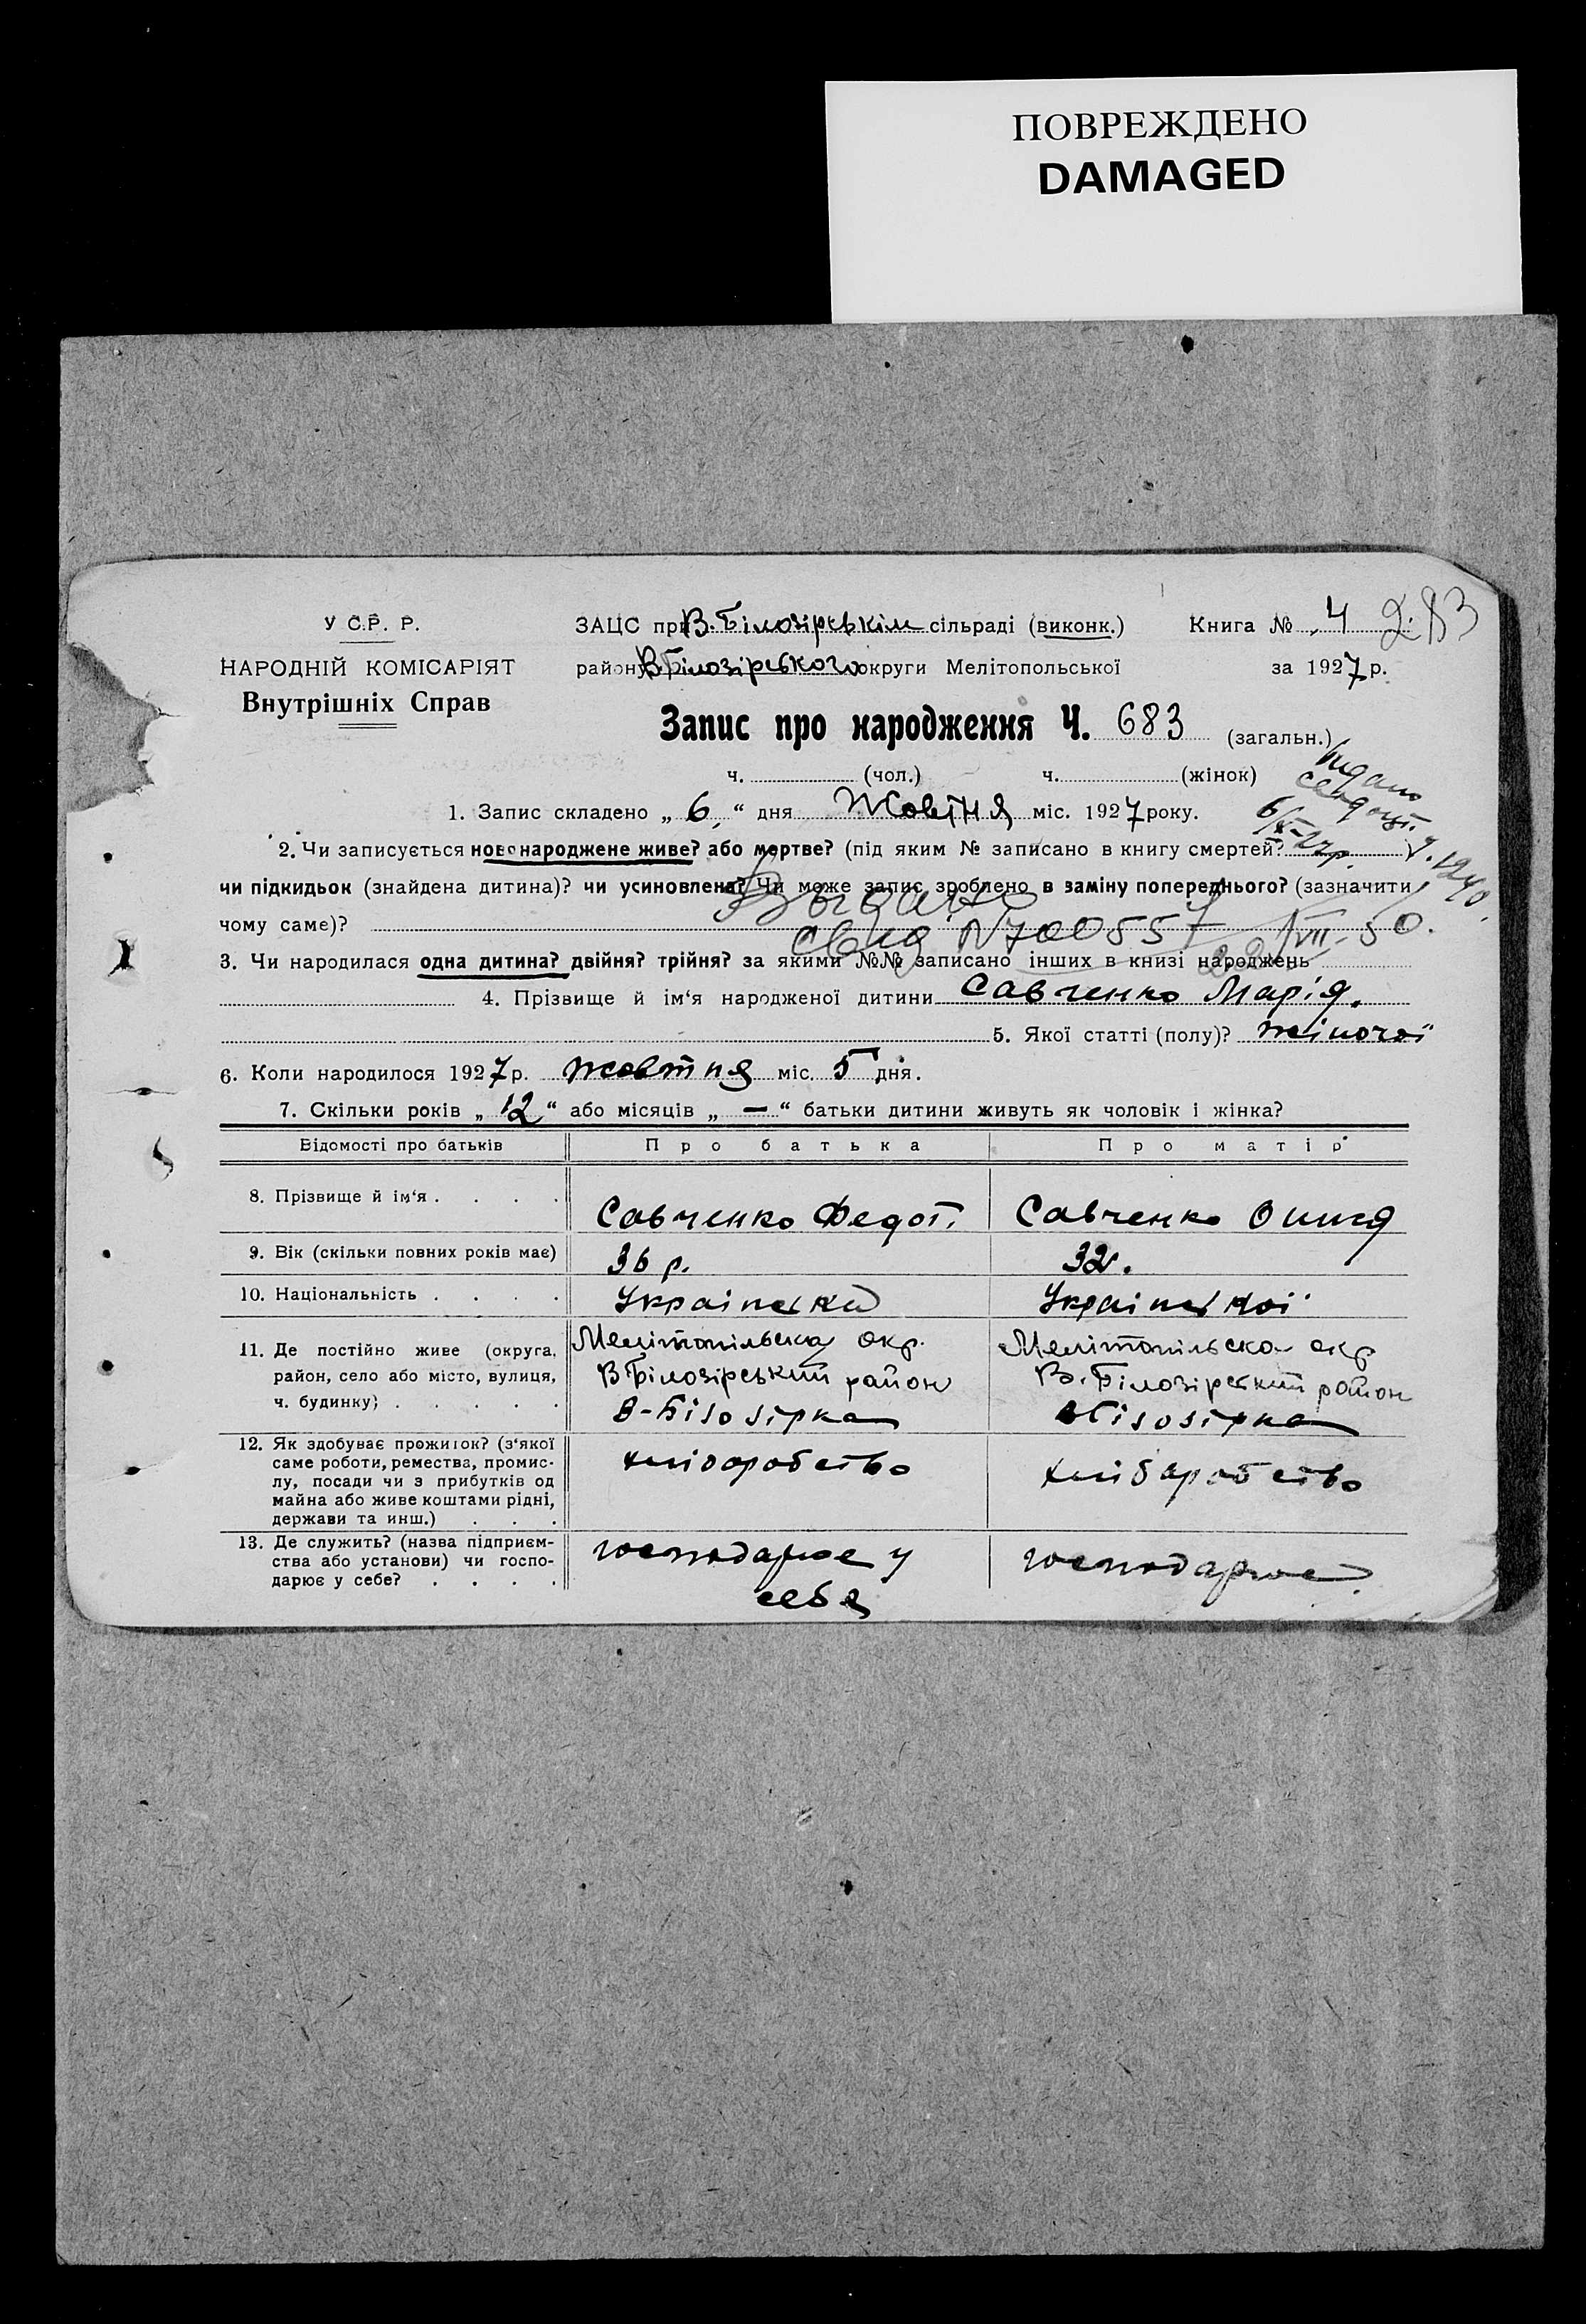 ПОВРЕЖДЕНО
DAMAGED
У С.Р. Р.
НАРОДНІЙ КОМІСАРІЯТ
Внутрішніх Справ
ЗАЦС при В. Білозірськім сільраді (виконк.)
району В. Білозірського округи Мелітопольської
Книга № 4 283
за 1927 р.
Запис про народження Ч. 683 (загальн.)
ч. (чол.) ч. (жінок)
1. Запис складено „ 6 “ дня Жовтня міс. 1927 року.
2. Чи записується новонароджене живе? або мертве? (під яким № записано в книгу смертей?
чи підкидьок (знайдена дитина)? чи усиновлена? Чи може запис зроблено в заміну попереднього? (зазначити
чому саме)?
Выдано
3. Чи народилася одна дитина? двійня? трійня? за якими №№ записано інших в книзі народжень
4. Прізвище й ім‘я народженої дитини Савченко Марія.
5. Якої статті (полу)? жіночої
6. Коли народилося 1927 р. жовтня міс. 5 дня.
7. Скільки років „ 12 “ або місяців „ — “ батьки дитини живуть як чоловік і жінка?
Відомості про батьків Про батька Про матір
8. Прізвище й ім‘я . . . . Савченко Федот. Савченко
9. Вік (скільки повних років має) 36 р. 32.
10. Національність . . . .
11. Де постійно живе (округа, район, село або місто, вулиця, ч. будинку) . . . . .
Мелітопільська окр.
В Білозірський район
В-Білозірка
Мелітопільська окр
В. Білозірський район
ВБілозірка
12. Як здобуває прожиток? (з‘якої
саме роботи, ремества, промис-
лу, посади чи з прибутків од
майна або живе коштами рідні,
держави та инш.) . . .
хліборобство
хліборобство
13. Де служить? (назва підприєм-
ства або установи) чи госпо-
дарює у себе? . . . .
господарює у
себя
господарює